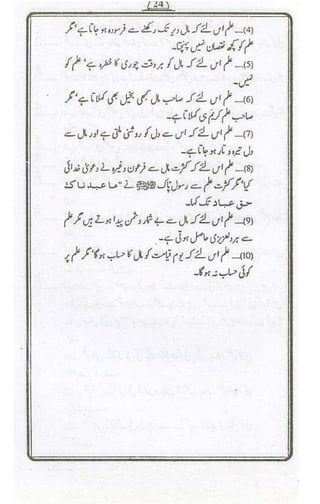 (24)
(4)۔۔۔۔ علم اس لئے کہ مال دیر تک رکھنے سے فرسودہ ہو جاتا ہے‘ مگر
علم کو کچھ نقصان نہیں پہنچتا۔
(5)۔۔۔۔ علم اس لئے کہ مال کو ہر وقت چوری کا خطرہ ہے‘ علم کو
نہیں۔
(6)۔۔۔۔ علم اس لئے کہ صاحب مال کبھی بخیل بھی کہلاتا ہے‘ مگر
صاحب علم کریم ہی کہلاتا ہے۔
(7)۔۔۔۔ علم اس لئے کہ اس سے دل کو روشنی ملتی ہے اور مال سے
دل تیرہ و تار ہو جاتا ہے۔
(8)۔۔۔۔ علم اس لئے کہ کثرت مال سے فرعون وغیرہ نے دعویٰ خدائی
کیا‘ مگر کثرت علم سے رسول پاک ﷺ نے ”ما عبدناک
حق عبادتک کہا۔
(9)۔۔۔۔ علم اس لئے کہ مال سے بے شمار دشمن پیدا ہوتے ہیں مگر علم
سے ہر دلعزیزی حاصل ہوتی ہے۔
(10)۔۔۔۔ علم اس لئے کہ یوم قیامت کو مال کا حساب ہو گا‘ مگر علم پر
کوئی حساب نہ ہو گا۔